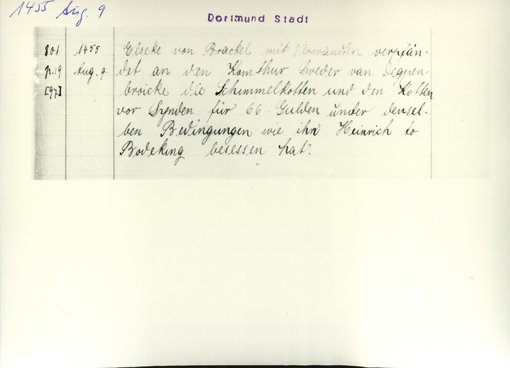 1455 Aug. 9
Dortmund Stadt
801 1455 Elseke von Brackel mit Verwandten verpfän-
p. 19 Aug. 9. det an den Komthur Sweder van
[97] brücke die Schimmelkotten und den Kotten
vor Synden für 66 Gulden unter densel-
ben Bedingungen wie ihn Heinrich to
Bodeking besessen hat.